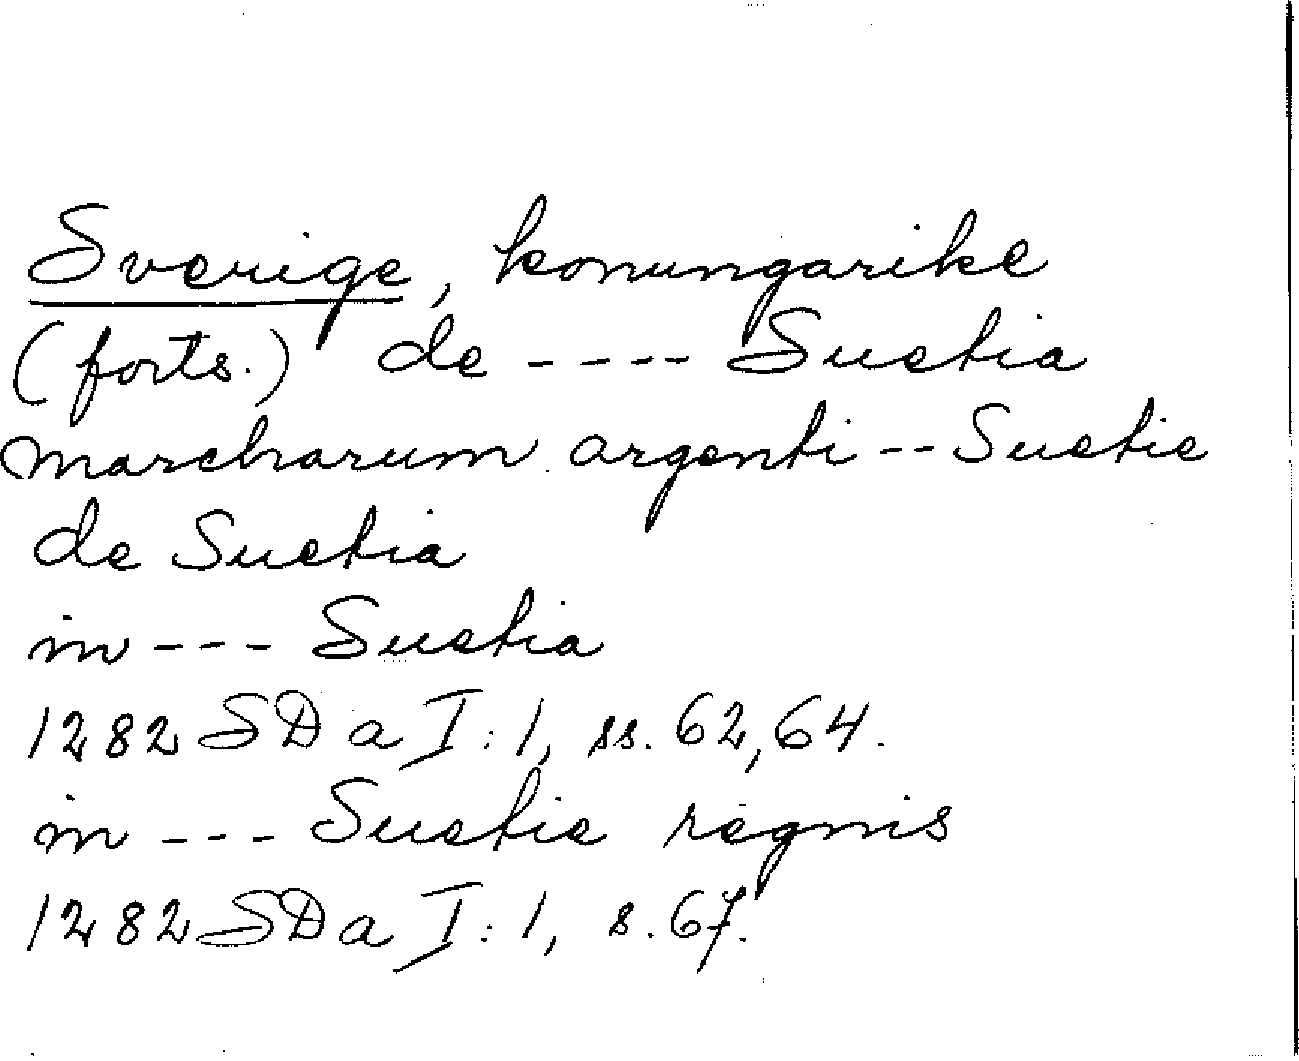 Sverige, konungarike
(forts.) de ---- Suetia
marcharum argenti -- Suetie
de Suetia
in --- Suetia
1282 SD a I:1, ss. 62, 64.
in --- Suetie regnis
1282 SD a I:1, s. 67.